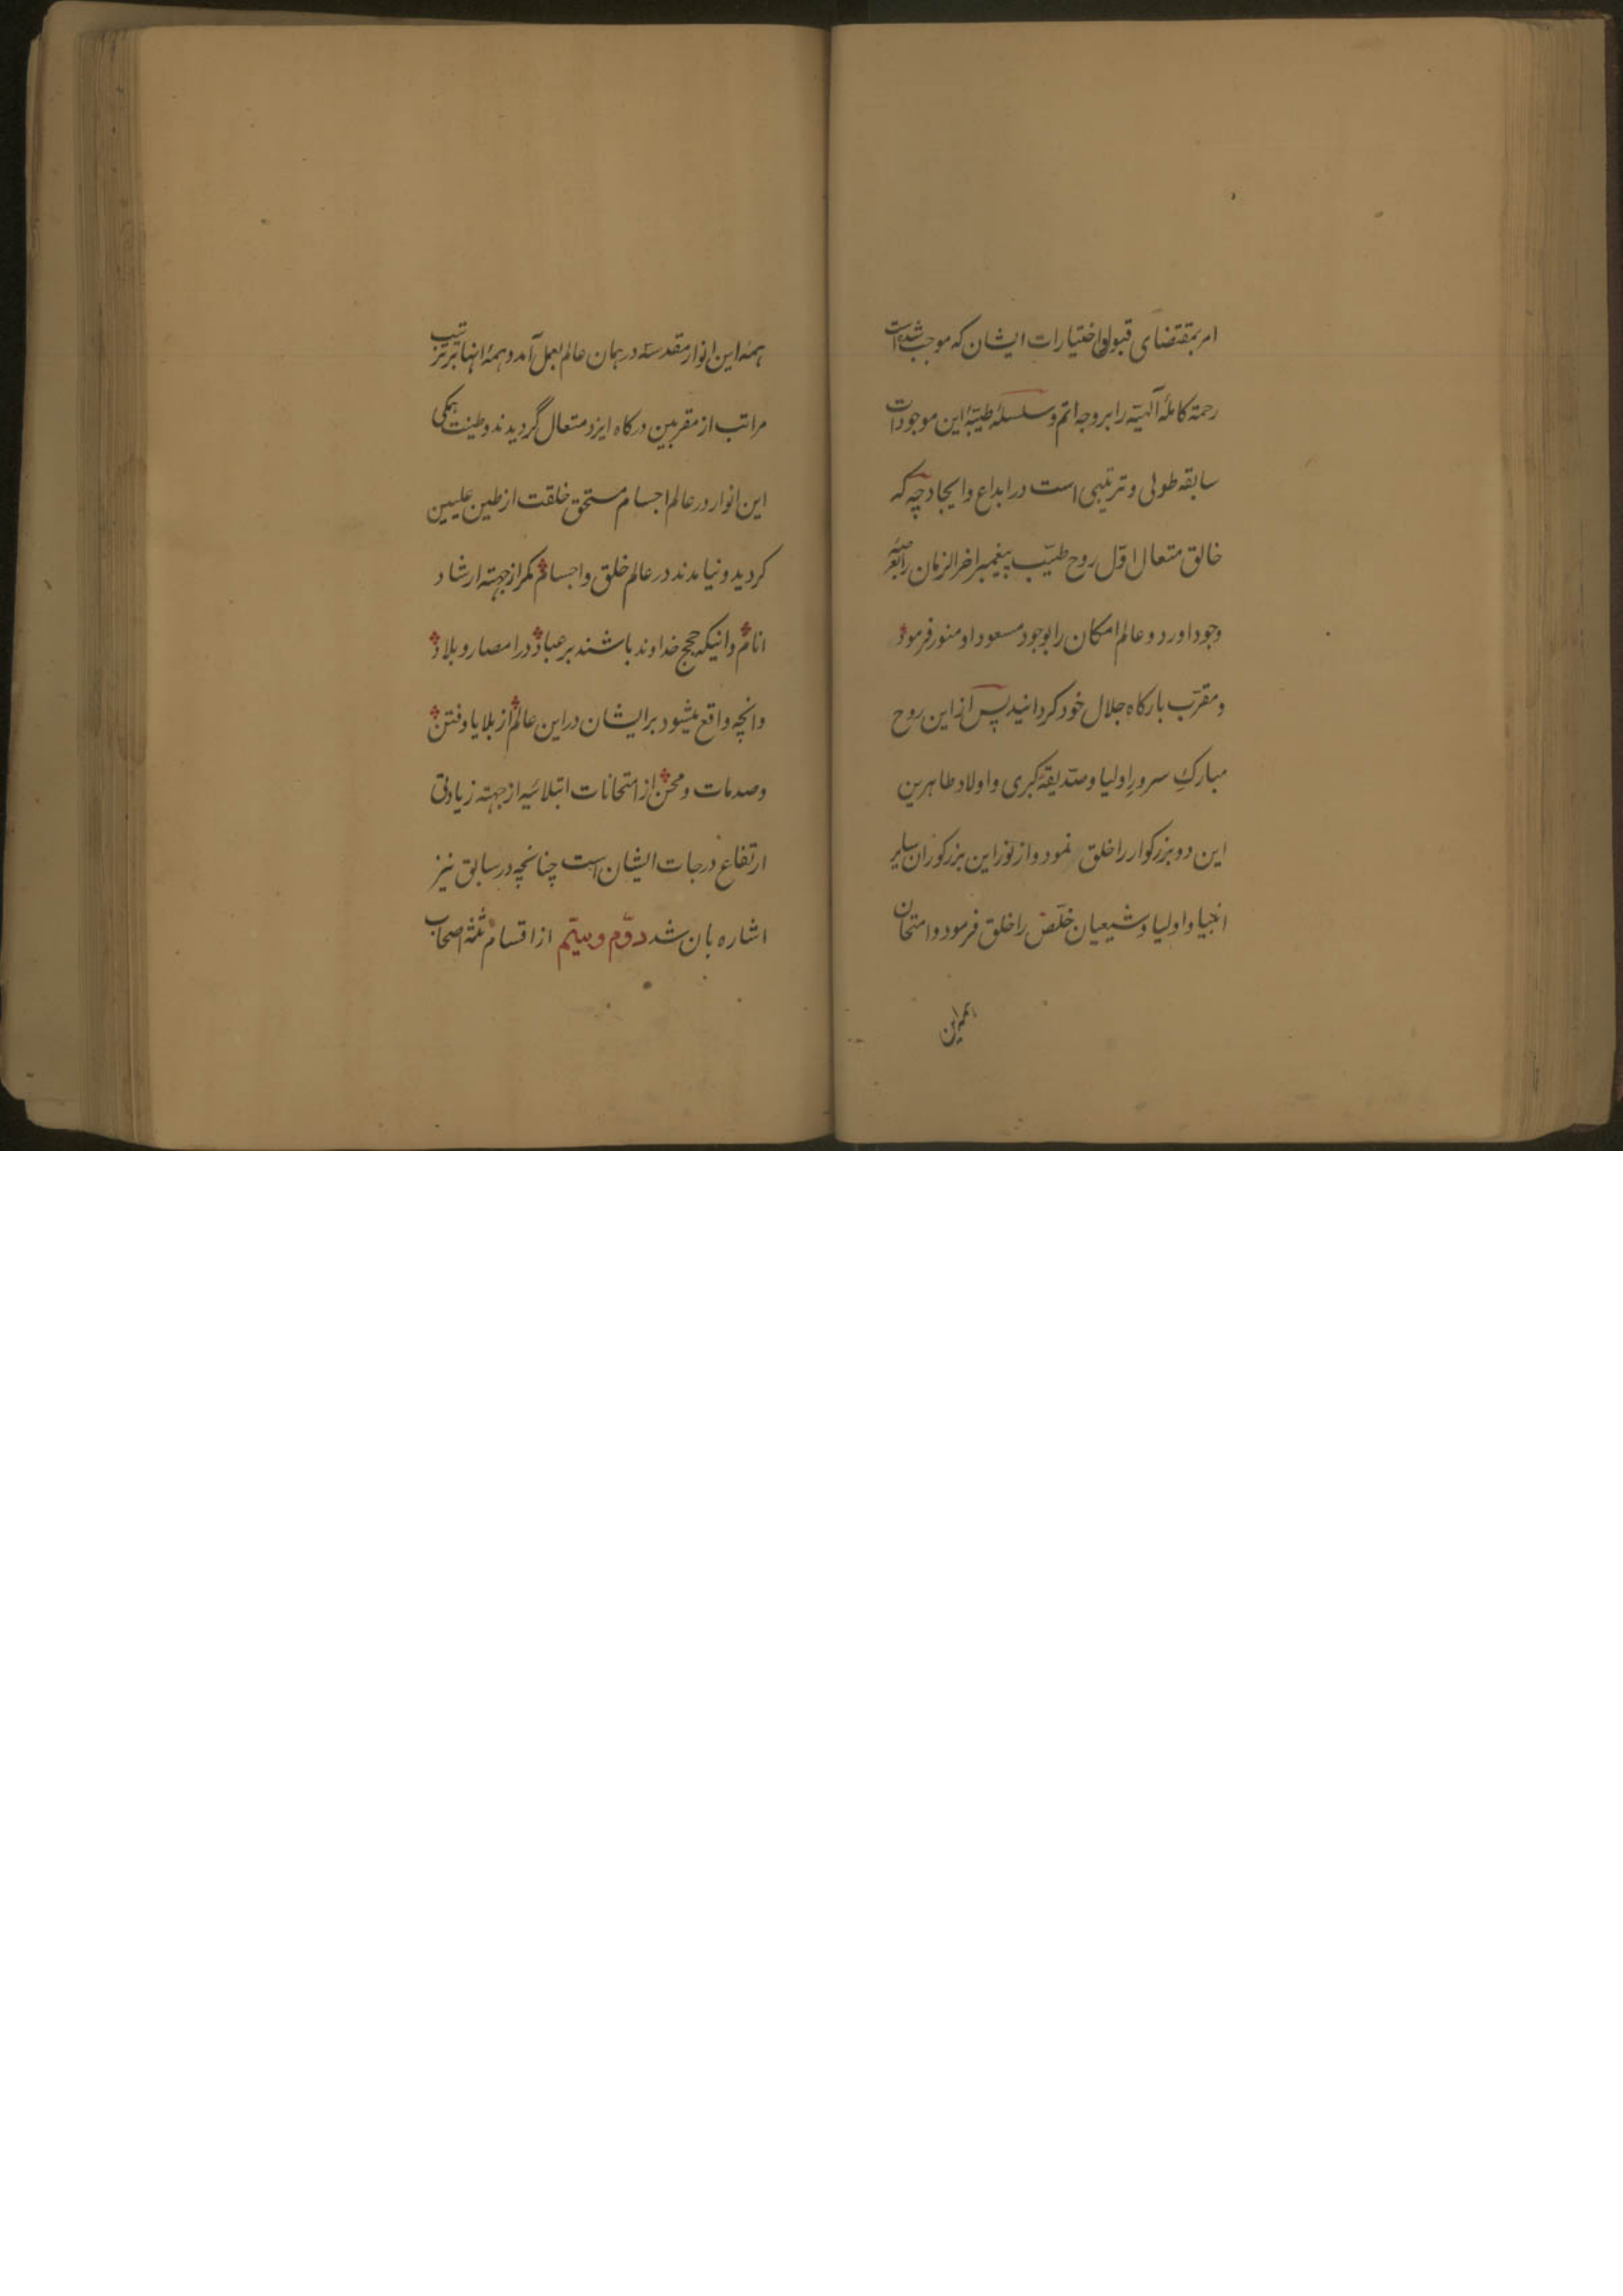 امر بمقتضای قبول و اختیارات ایشان که موجب شده است
رحمة کاملهٔ آلهیّه را بر وجه اتم و سلسلهٔ طیّبهٔ این موجودات
سابقه طولی و ترتیبی است در ابداع و ایجاد چه که
خالق متعال اوّل روح طیّب پیغمبر اخر الزمان را بعرصهٔ
وجود اورد و عالم امکان را بوجود مسعود او منور فرمود
و مقرّب بارکاه جلال خود کردانید پس از این روح
مبارک سرور اولیا و صدّیقهٔ کبری و اولاد طاهرین
این دو بزرکوار را خلق نمود و از نور این بزرکوران سایر
انبیا و اولیا و شیعیان خلّص را خلق فرمود و امتحان
همهٔ این
همهٔ این انوار مقدسه در همان عالم بعمل آمد و همهٔ انها بترتیب
مراتب از مقربین درکاه ایزد متعال گردیدند و طینت همکی
این انوار در عالم اجسام مستحق خلقت از طین علیین
کردید و نیامدند در عالم خلق و اجسام مکر از جهته ارشاد
انام و انیکه حجج خداوند باشند بر عباد در امصار و بلاد
و انچه واقع میشود بر ایشان در این عالم از بلایا و فتن
و صدمات و محن از امتحانات ابتلائیه از جهته زیادتی
ارتفاع درجات ایشان است چنانچه در سابق نیز
اشاره بان شد دوّم و سیّم از اقسام ثلثه اصحاب